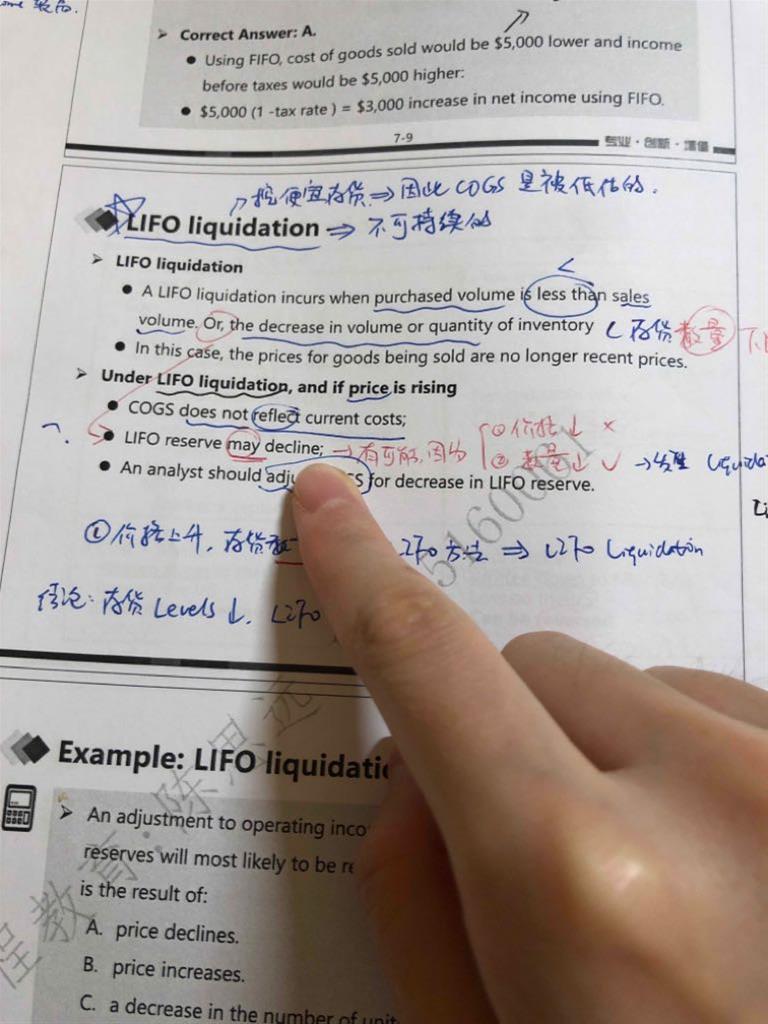 Correct Answer: A.
Using FIFO, cost of goods sold would be $5,000 lower and income
before taxes would be $5,000 higher:
$5,000 (1 -tax rate ) = $3,000 increase in net income using FIFO.
7-9
专业·创新·增值
便宜存货 ⇒ 因此 COGS 是被低估的.
LIFO liquidation ⇒ 不可持续的
LIFO liquidation
<
A LIFO liquidation incurs when purchased volume is less than sales
volume. Or, the decrease in volume or quantity of inventory 存货数量下
In this case, the prices for goods being sold are no longer recent prices.
Under LIFO liquidation, and if price is rising
COGS does not reflect current costs;
LIFO reserve may decline; → 有可能,因为 ① 价格↓ ×
② 数量↓ ✓ → 发生 Liquida
An analyst should adju GS for decrease in LIFO reserve.
51600
价格上升, 存货 LIFO 方法 ⇒ LIFO Liquidation
结论: 存货 Levels ↓. LIFO
Example: LIFO liquidati
An adjustment to operating inco
reserves will most likely to be re
is the result of:
A. price declines.
B. price increases.
C. a decrease in the number of unit
程教育:陈思远